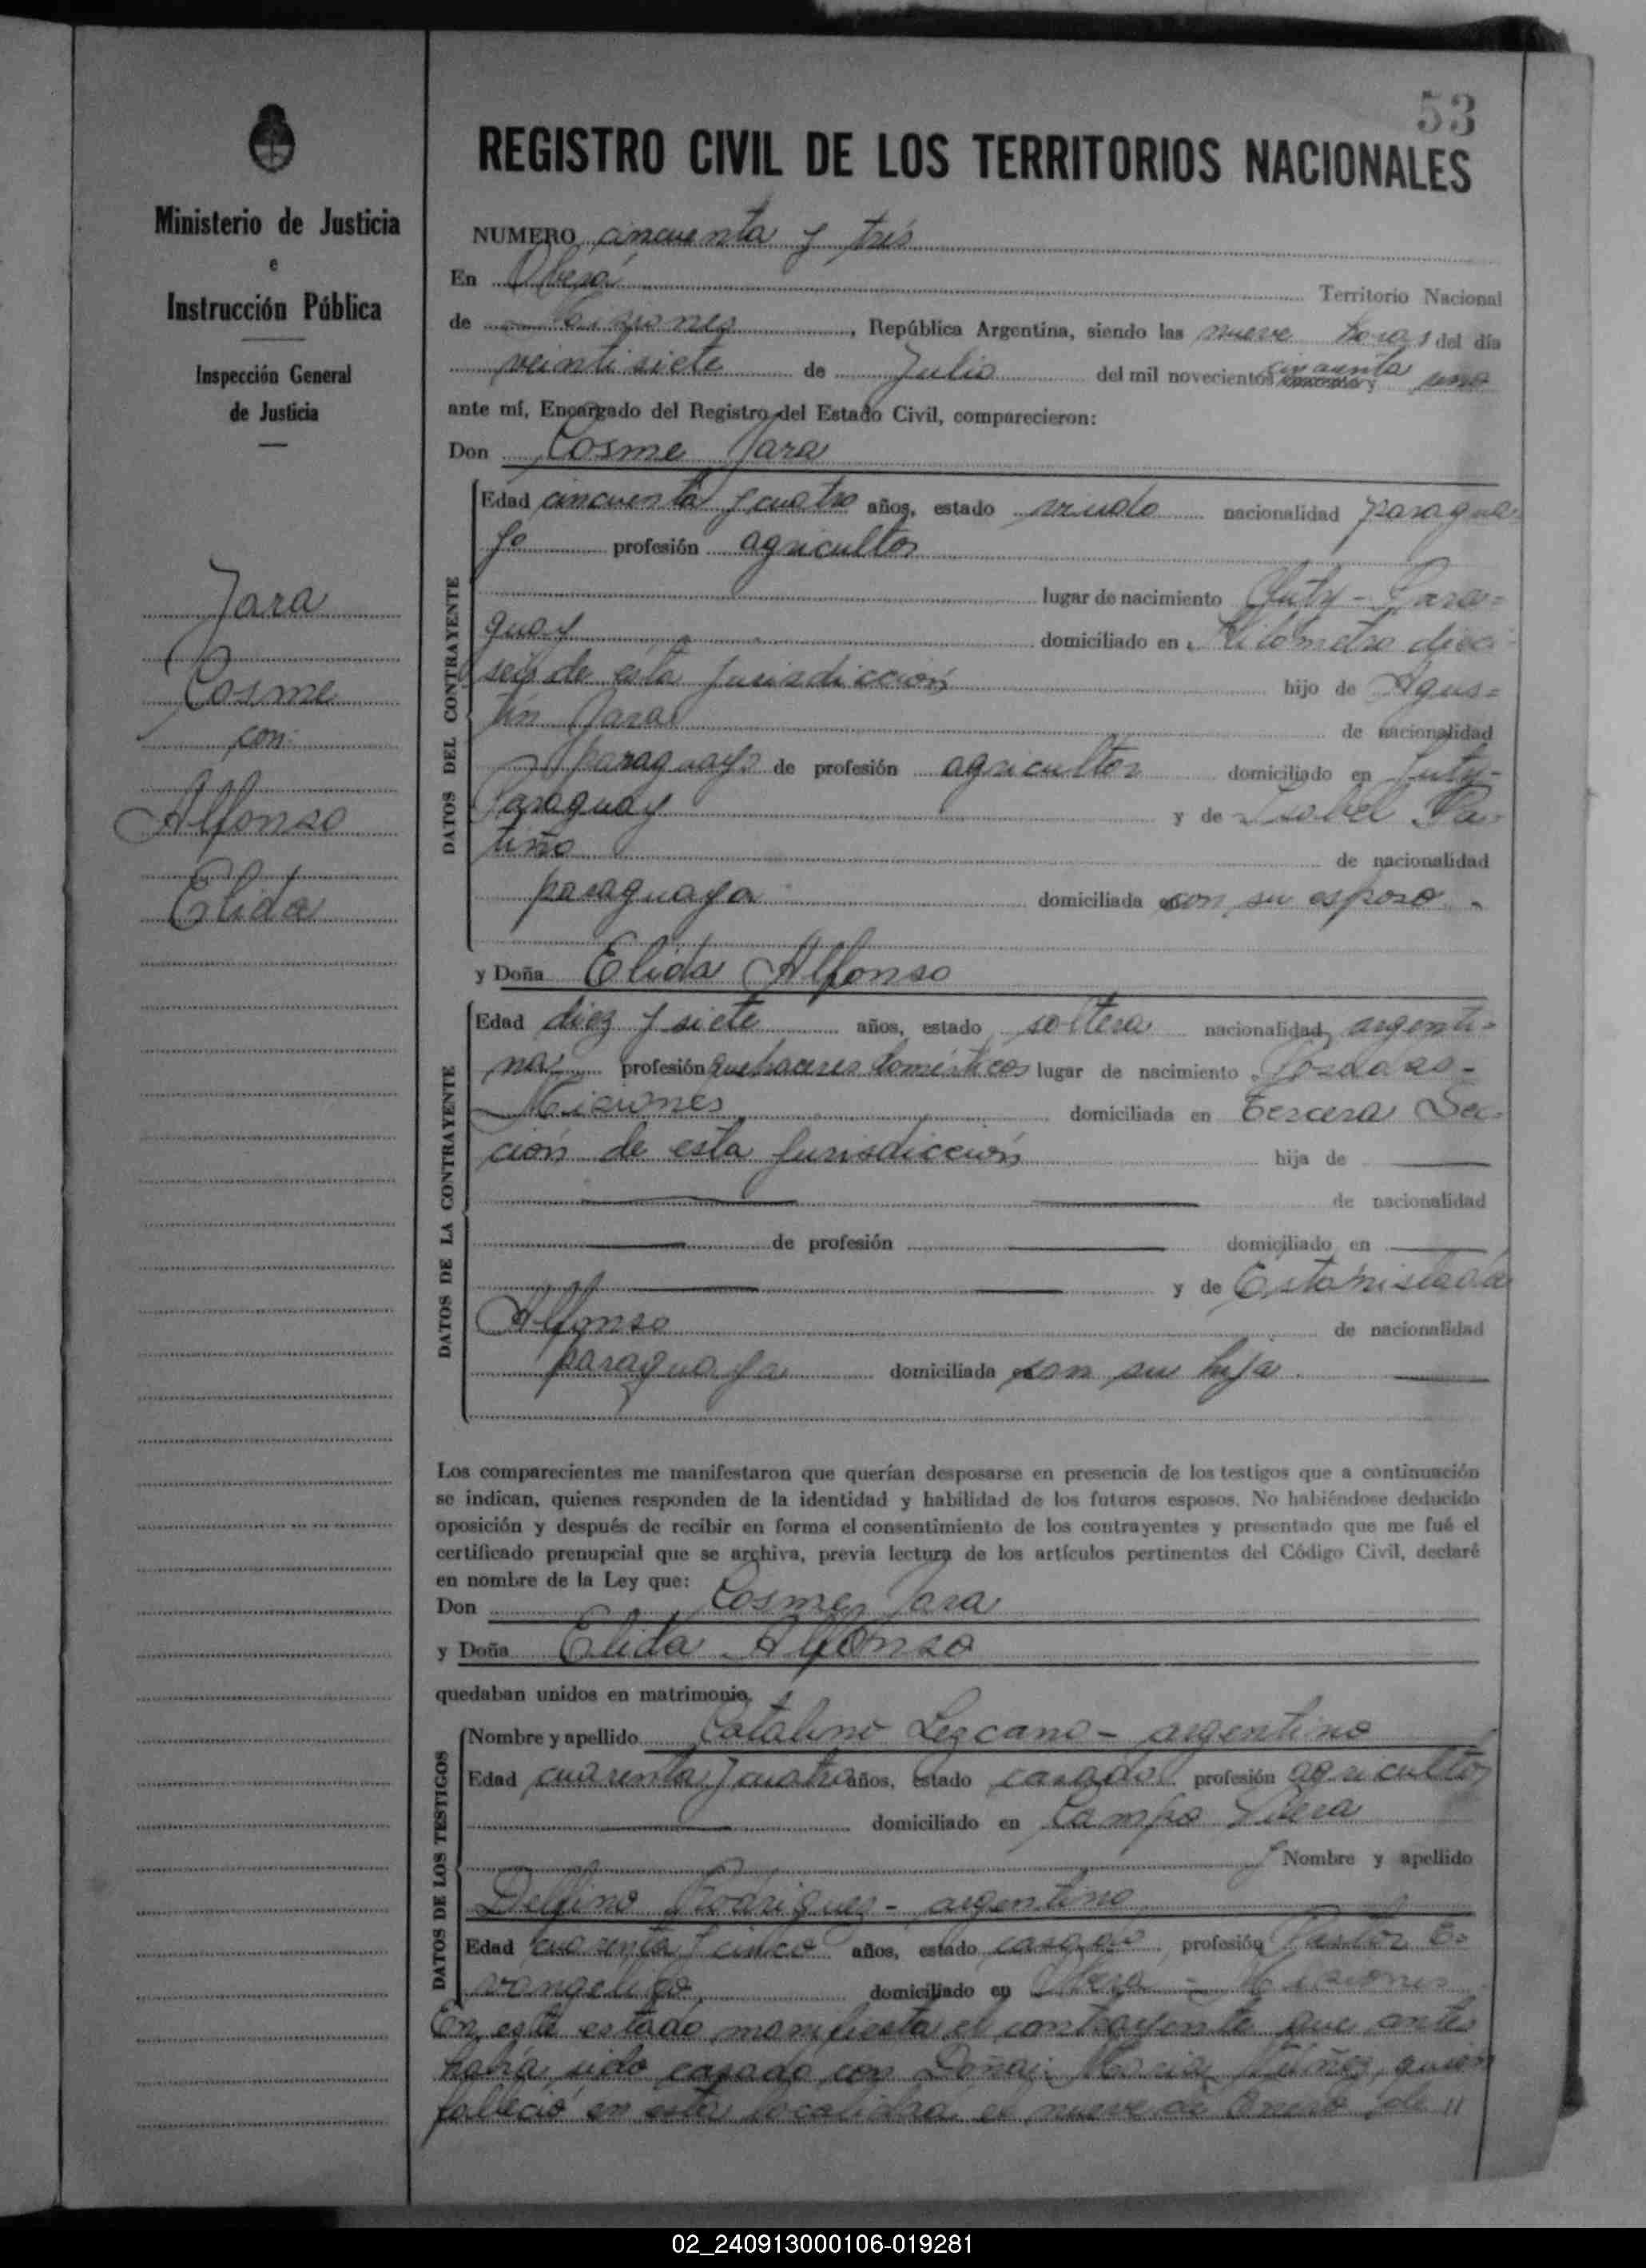 53
Ministerio de Justicia
e
Instrucción Pública
Inspección General
de Justicia
Jara
Cosme
con
Alfonso
Elida
REGISTRO CIVIL DE LOS TERRITORIOS NACIONALES
NUMERO cincuenta y tres
En Oberá Territorio Nacional
de Misiones, República Argentina, siendo las nueve horas del día
veintisiete de Julio del mil novecientos cincuenta y uno
ante mí, Encargado del Registro del Estado Civil, comparecieron:
Don Cosme Jara
DATOS DEL CONTRAYENTE
Edad cincuenta y cuatro años, estado viudo nacionalidad paragua
yo profesión agricultor
lugar de nacimiento Yuty - Para=
guay domiciliado en Kilómetro dieci
seis de esta jurisdicción hijo de Agus=
tín Jara de nacionalidad
paraguayo de profesión agricultor domiciliado en Yuty-
Paraguay y de Isabel Pa-
tiño de nacionalidad
paraguaya domiciliada con su esposo -
y Doña Elida Alfonso
DATOS DE LA CONTRAYENTE
Edad diez y siete años, estado soltera nacionalidad argenti=
na profesión quehaceres domésticos lugar de nacimiento Posadas -
Misiones domiciliada en tercera Sec-
ción de esta jurisdicción hija de
de nacionalidad
de profesión domiciliado en
y de Estanislada
Alfonso de nacionalidad
paraguaya domiciliada con su hija
Los comparecientes me manifestaron que querían desposarse en presencia de los testigos que a continuación
se indican, quienes responden de la identidad y habilidad de los futuros esposos. No habiéndose deducido
oposición y después de recibir en forma el consentimiento de los contrayentes y presentado que me fué el
certificado prenupcial que se archiva, previa lectura de los artículos pertinentes del Código Civil, declaré
en nombre de la Ley que:
Don Cosme Jara
y Doña Elida Alfonso
quedaban unidos en matrimonio.
DATOS DE LOS TESTIGOS
Nombre y apellido Catalino Lezcano - argentino
Edad cuarenta y cuatro años, estado casado profesión agricultor
domiciliado en Campo Viera
y Nombre y apellido
Delfino Rodriguez - argentino
Edad cuarenta y cinco años, estado casado, profesión Pastor E=
vangelico domiciliado en Oberá - Misiones
En este estado manifiesta el contrayente que antes
había sido casado con Doña: Maria Núñez, quien
falleció en esta localidad el nueve de Enero de //
02_240913000106-019281